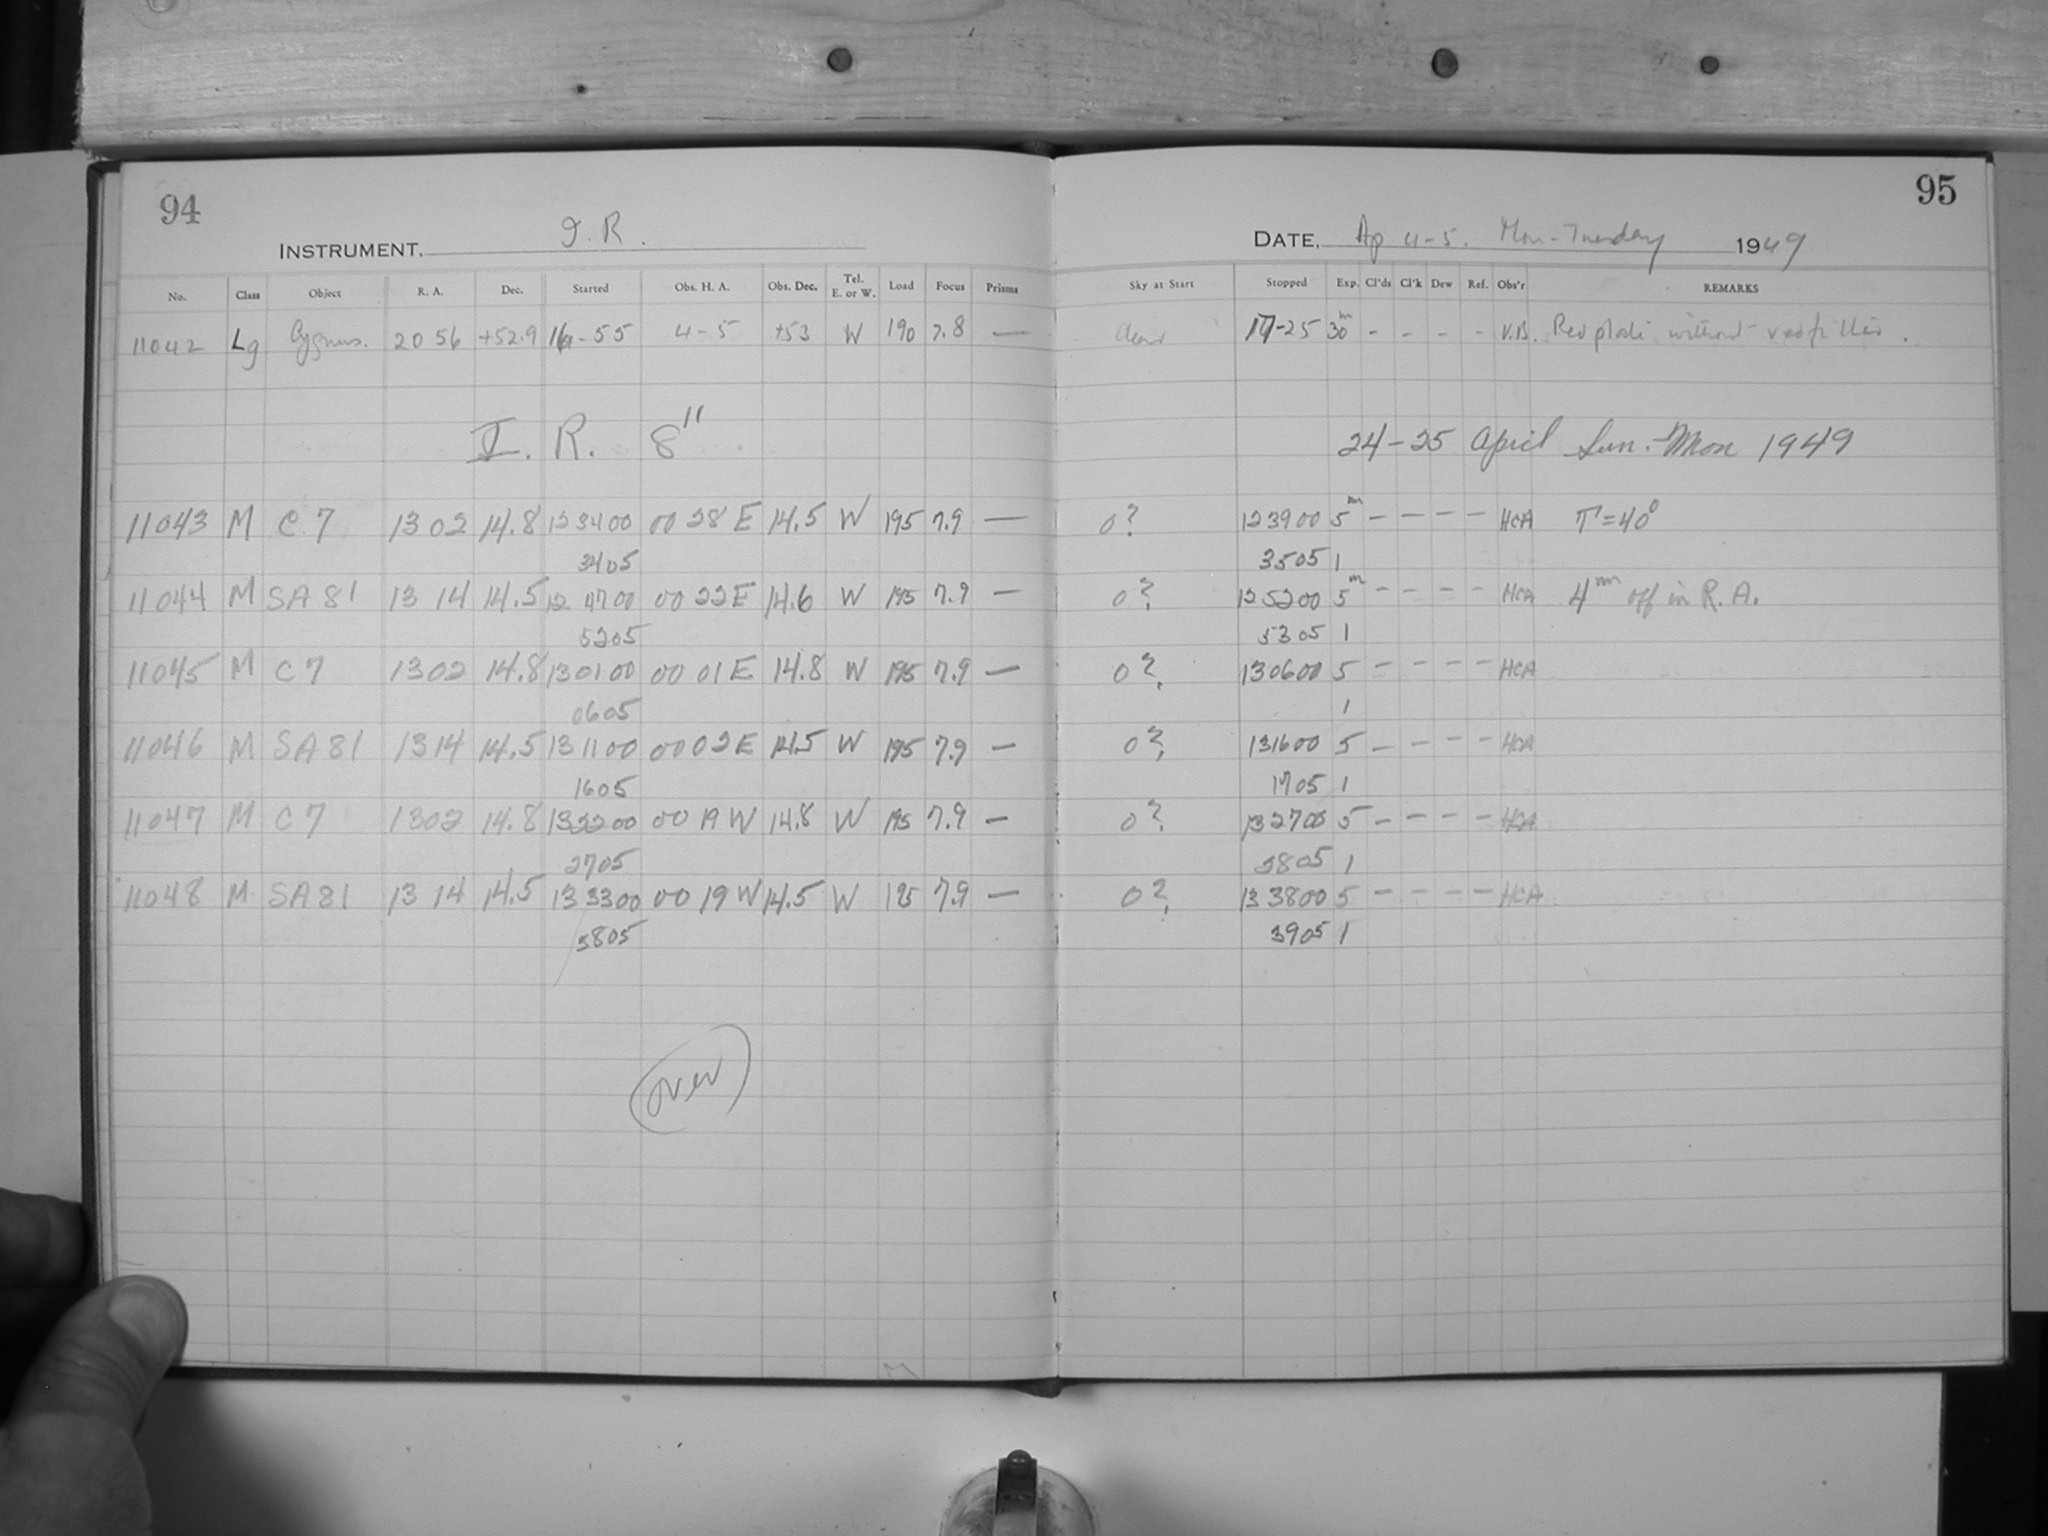 94
95
INSTRUMENT, I. R.
DATE, Ap 4-5. Mon-Tuesday 1949
No. Class Object R. A. Dec. Started Obs. H. A. Obs. Dec. Tel. E. or W. Load Focus Prisms Sky at Start Stopped Exp. Cl'ds Cl'k Dew Ref. Obs'r REMARKS
11042 Lg Cygnus. 20 56 +52.9 16-55 4-5 +53 W 190 7.8 — Clear 17-25 30m - - - - V.B. Red plate without red filter.
I. R. 8"
24-25 April Sun.-Mon 1949
11043 M C 7 13 02 14.8 12 34 00 00 28 E 14.5 W 195 7.9 — 0? 12 39 00 5m — — — — HCA T=40°
3405 3505 1
11044 M SA 81 13 14 14.5 12 47 00 00 22 E 14.6 W 195 7.9 — 0? 12 52 00 5m — — — — HCA 4mm off in R. A.
5205 5305 1
11045 M C 7 13 02 14.8 13 01 00 00 01 E 14.8 W 195 7.9 — 0? 13 06 00 5 — — — — HCA
0605 1
11046 M SA 81 13 14 14.5 13 11 00 00 02 E 14.5 W 195 7.9 — 0? 13 16 00 5 — — — — HCA
1605 1705 1
11047 M C 7 13 02 14.8 13 22 00 00 19 W 14.8 W 195 7.9 — 0? 13 27 00 5 — — — — HCA
2705 2805 1
11048 M SA 81 13 14 14.5 13 33 00 00 19 W 14.5 W 195 7.9 — 0? 13 38 00 5 — — — — HCA
3805 3905 1
over